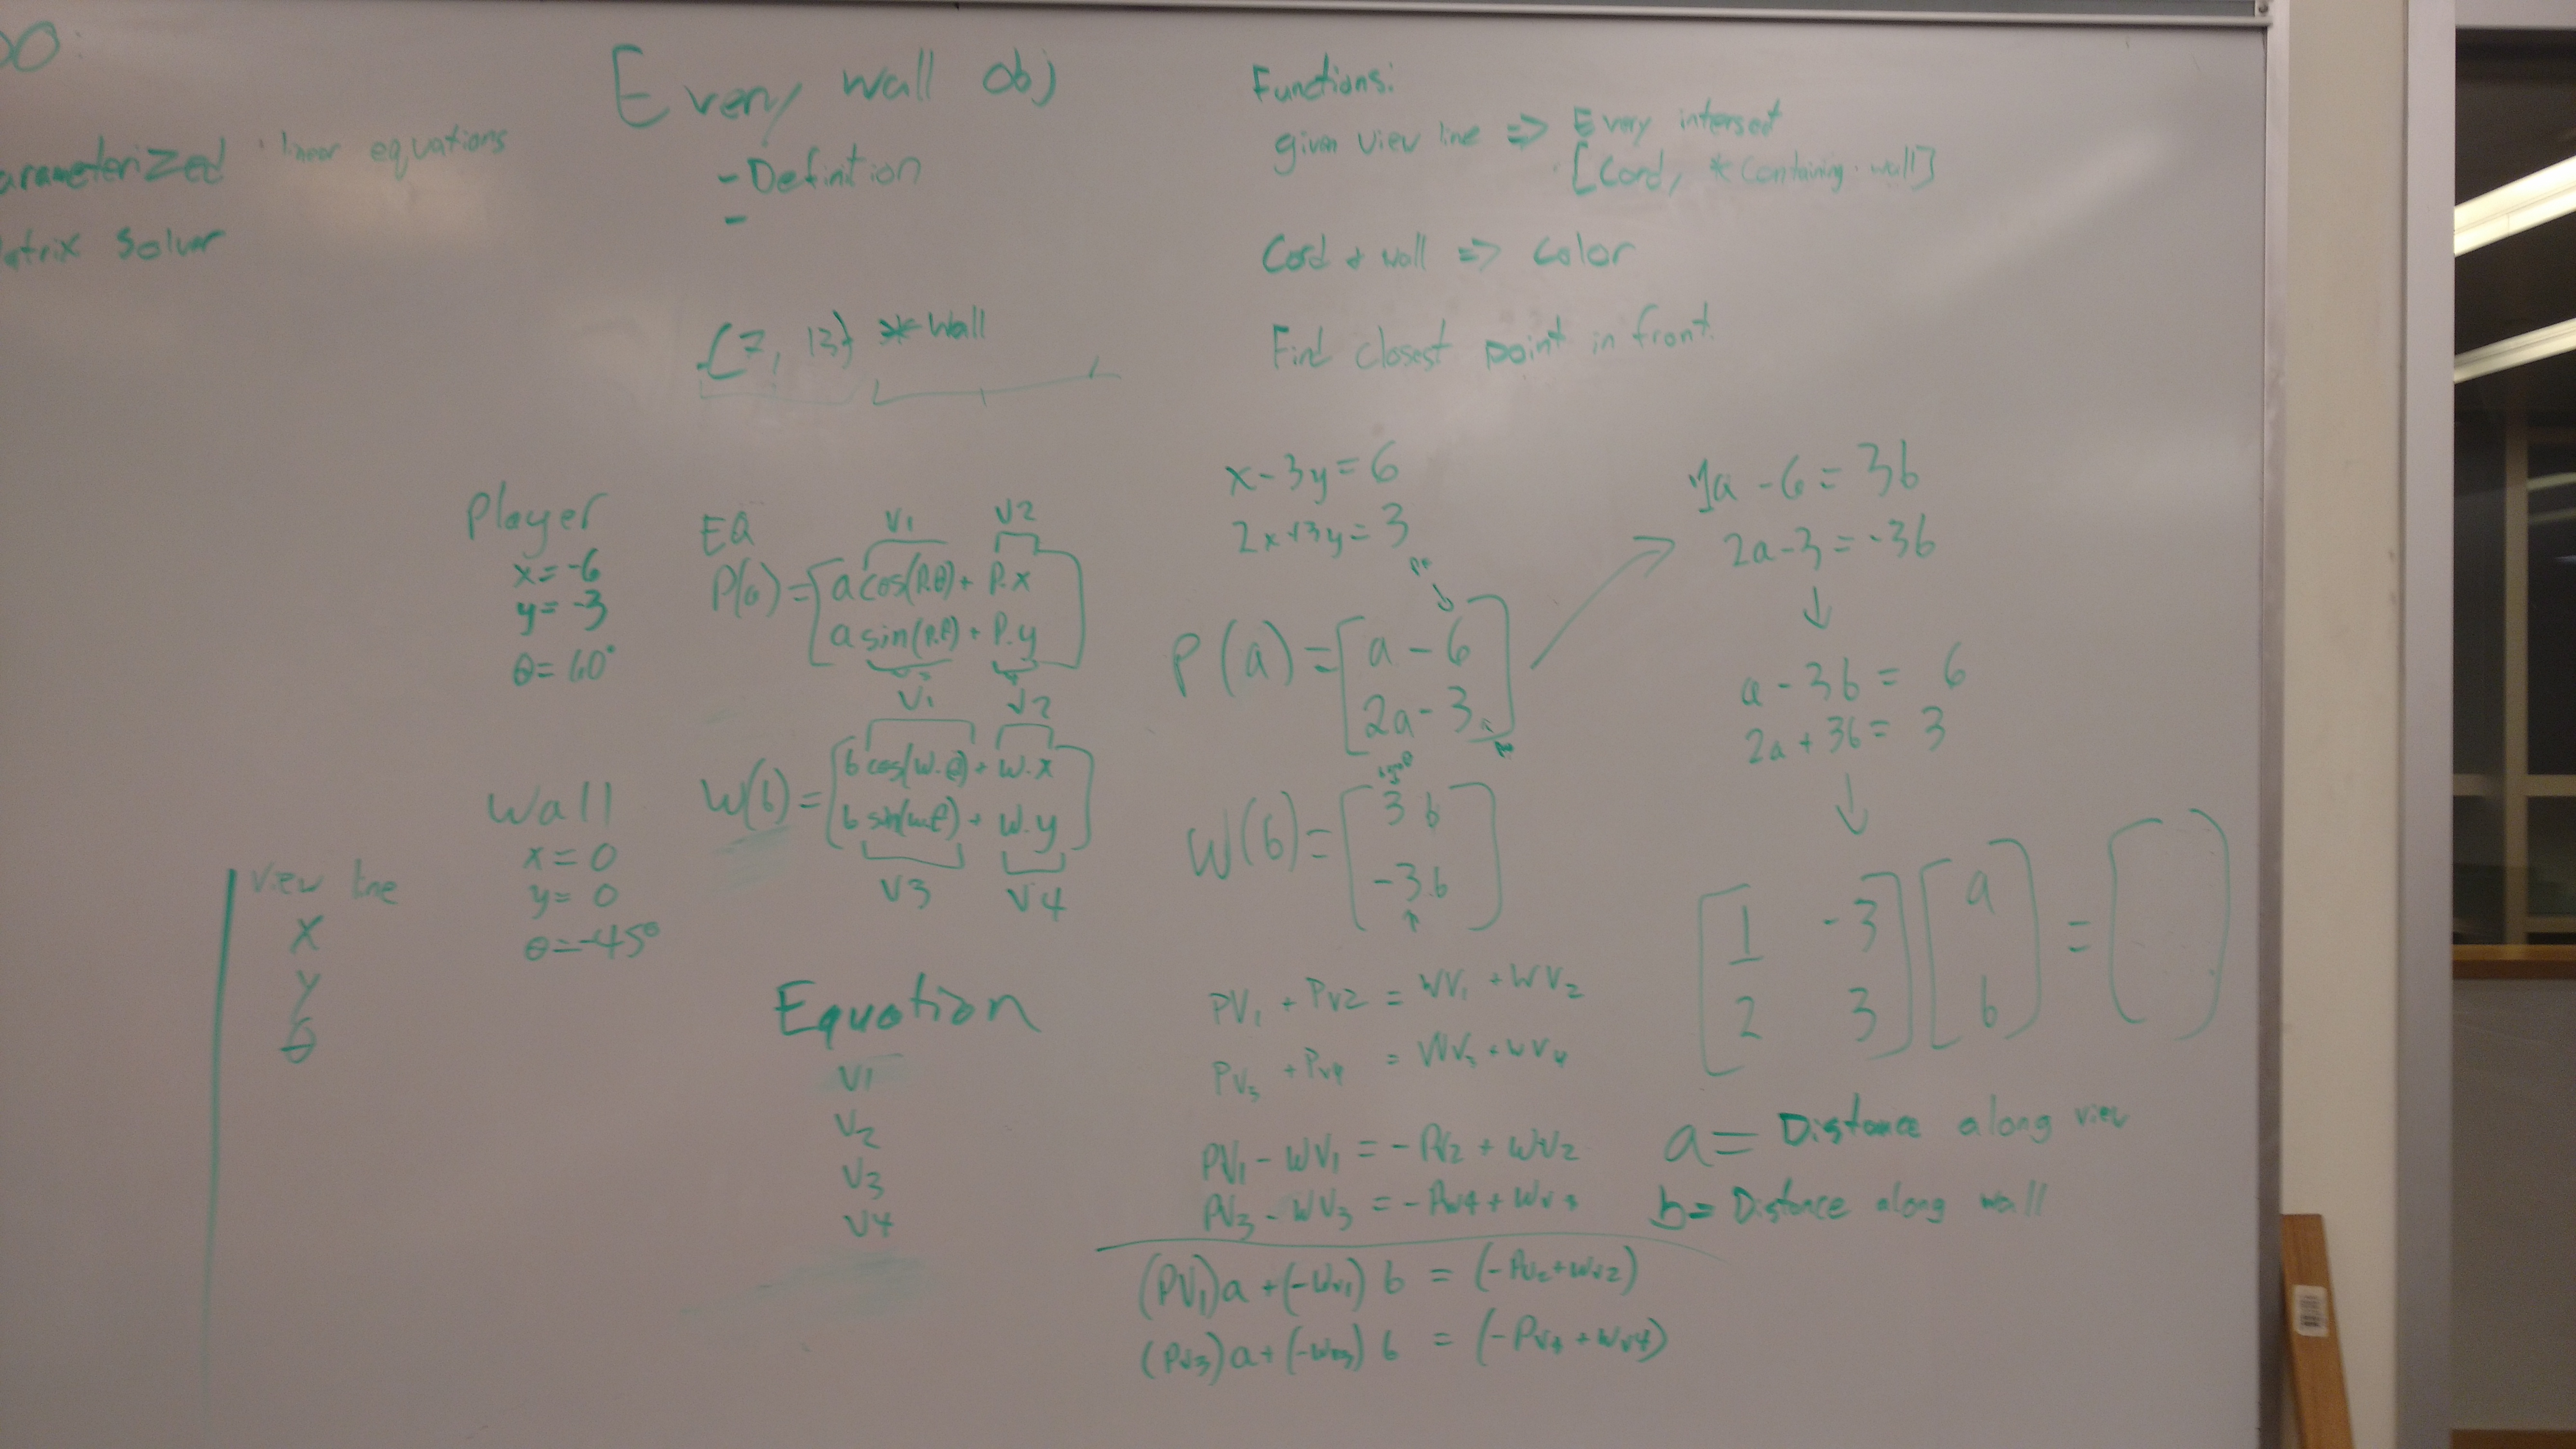 DO
arameterized linear equations
atrix Solver
Every wall obj
- Defintion
-
{7, 13} *Wall
Functions:
given view line => Every intersect
[Cord, *Containing wall]
Cord + wall => Color
Find closest point in front
Player
x=-6
y=-3
θ=60°
EQ
V1 V2
P(a)=[a cos(P.θ)+ P.x
a sin(P.θ)+ P.y]
V1 V2
W(b)=[b cos(W.θ)+ W.x
b sin(W.θ)+ W.y]
V3 V4
Wall
x=0
y=0
θ=-45°
view line
X
Y
θ
Equation
V1
V2
V3
V4
x-3y=6
2x+3y=3
P(a)=[a-6
2a-3]
W(b)=[3b
-3b]
PV1 + PV2 = WV1 + WV2
PV3 + PV4 = WV3 + WV4
PV1 - WV1 = -PV2 + WV2
PV3 - WV3 = -PV4 +
(PV1)a+(-WV1)b = (-PV2+WV2)
(PV3)a+(-WV3)b = (-PV4+WV4)
1a-6=3b
2a-3=-3b
↓
a-3b= 6
2a+3b= 3
↓
[1 -3
2 3][a
b]=[ ]
a= Distance along view
b= Distance along wall